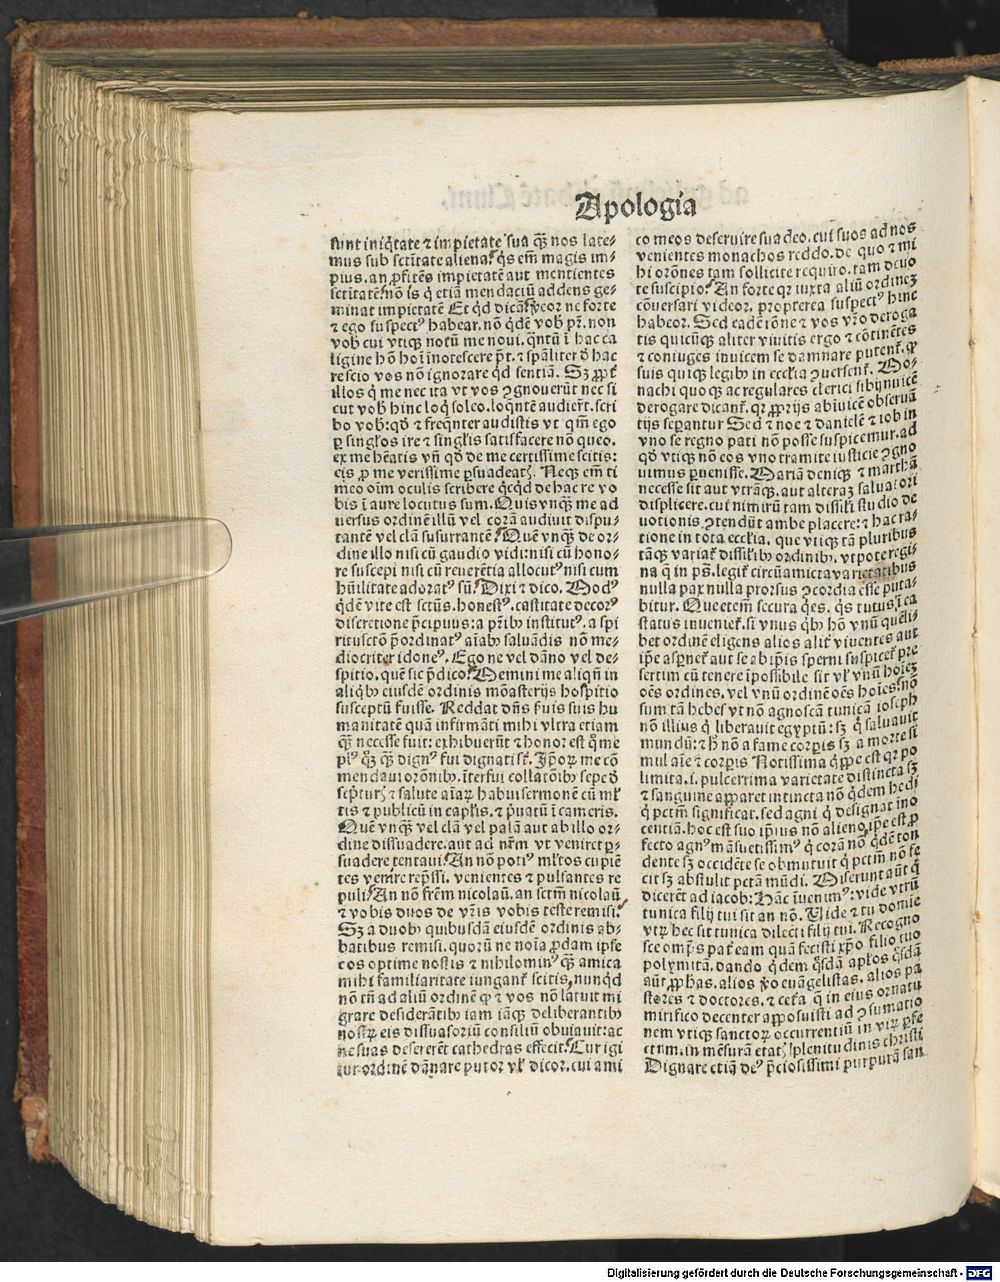 Apologia
sunt iniq̃tate ⁊ impietate sua q̃ꝫ nos late⸗
mus sub sctĩtate aliena? q̃s em̃ magis im⸗
pius. an ꝓfitẽs impietatẽ aut mentientes
sctĩtatẽ? nõ is q̃ etiã mendaciũ addens ge⸗
minat impietatẽ Et qd̃ dicã? ve
⁊ ego suspectꝰ habear. nõ q̃dẽ vob̃ pr̃. non
vob̃ cui vtiqꝫ notũ me noui. q̃ntũ ĩ hac ca
ligine hõ hoĩ ĩnotescere
re scio vos nõ ignorare qd̃ sentiã. Sꝫ
illos q̃ me nec ita vt vos ꝯgnouerũt nec si
cut vob̃ hinc loq̃ soleo. loq̃ntẽ audier̃t. scri
bo vob̃: qd̃ ⁊ freq̃nter audistis vt qm̃ ego
ꝑ singl̃os ire ⁊ singl̃is satisfacere nõ queo.
ex me hẽatis vñ qd̃ de me certissime scitis:
eis ꝓ me verissime ꝑsuadeatꝭ. Neqꝫ em̃ ti
meo oĩm oculis scribere q̃cq̃d de hac re vo
bis ĩ aure locutus sum. Quis vnq̃ꝫ me ad
uersus ordinẽ illũ vel corã audiuit dispu⸗
tantẽ vel clã susurrantẽ? Quẽ vnq̃ꝫ de or⸗
dine illo nisi cũ gaudio vidi: nisi cũ hono⸗
re suscepi nisi cũ reuerẽtia allocutꝰ nisi cum
hũilitate adoratꝰ sũ? Dixi ⁊ dico. Modꝰ
q̃dẽ vite est sctũs. honestꝰ. castitate decorꝰ
discretione p̃cipuus: a pr̃ibꝫ institutꝰ. a spi
ritusctõ p̃ordinatꝰ aĩabꝫ saluãdis nõ me⸗
diocriter idoneꝰ. Ego ne vel dãno vel de⸗
spitio. quẽ sic p̃dico? Memini me aliqñ in
aliq̃bꝫ eiusdẽ ordinis mõasterijs hospitio
susceptũ fuisse. Reddat dñs s̃uis suis hu
manitatẽ quã infirmãti mihi vltra etiam
q̃ꝫ necesse fuit: exhibuerũt ⁊ honor
plꝰ q̃ꝫ dignꝰ fui dignati s̃t. Ip̃oꝝ me cõ
mendaui orõnibꝫ. ĩterfui collatõibꝫ sepe ð
sc̃pturꝭ ⁊ salute aĩaꝝ habui sermonẽ cũ ml̃
tis ⁊ publicũ in capl̃is. ⁊ p̃uatũ ĩ cameris.
Quẽ vnq̃ꝫ vel clã vel palã aut ab illo or⸗
dine dissuadere. aut ad nr̃m vt veniret ꝑ⸗
suadere tentaui? An nõ potiꝰ ml̃tos cupiẽ
tes venire rep̃ssi. venientes ⁊ pulsantes re
puli? An nõ fr̃em nicolaũ. an sctm̃ nicolaũ
⁊ vobis duos de vr̃is vobis teste remisi?
Sꝫ a duobꝫ quibusdã eiusdẽ ordinis ab⸗
batibus remisi. quorũ ne noĩa ꝓdam ipse
eos optime nostis ⁊ nihilominꝰ q̃ꝫ amica
mihi familiaritate iungant̃ scitis, nunq̃d
nõ tñ ad aliũ ordinẽ qꝫ ⁊ vos nõ latuit mi
grare desiderãtibꝫ iam iãqꝫ deliberantibꝫ
nostꝝ eis dissuasoriũ consiliũ obuiauit: ac
ne suas desererẽt cathedras effecit? Cur igi
tur ordinẽ dãnare putor vl̃ dicor. cui ami
co meos deseruire suadeo. cui suos ad nos
venientes monachos reddo. de quo ⁊ mi
hi orõnes tam sollicite requiro. tam deuo
te suscipio? An forte qr iuxta aliũ ordineꝫ
cõuersari videor. propterea suspectꝰ hinc
habeor. Sed eadẽ rõne ⁊ vos vr̃o deroga
tis quicũqꝫ aliter viuitis ergo ⁊ cõtinẽtes
⁊ coniuges inuicem se damnare putent̃. qꝫ
suis quiqꝫ legibꝫ in ecclĩa ꝯuersent̃. Mo⸗
nachi quoqꝫ ac regulares clerici sibijnuicẽ
derogare dicant̃. qr ꝓprijs abĩuicẽ obseruã
tijs sepantur Sed ⁊ noe ⁊ danielẽ ⁊ iob in
vno se regno pati nõ posse suspicemur. ad
qd̃ vtiqꝫ nõ eos vno tramite iusticie ꝯgno
uimus ꝑuenisse. Mariã deniqꝫ ⁊ marthã
necesse sit aut vtrãqꝫ. aut alteraꝫ saluatori
displicere. cui nimirũ tam dissil̃i studio de
uotionis ꝯtendũt ambe placere: ⁊ hac ra⸗
tione in tota ecclĩa. que vtiqꝫ tã pluribus
tãqꝫ variat̃ dissil̃ibꝫ ordinibꝫ. vtpote regi⸗
na q̃ in ps̃. legit̃ circũamicta varietatibus
nulla pax nulla prorsus ꝯcordia esse puta⸗
bitur. Que etem̃ secura q̃es. q̃s tutus ĩ ea
status inueniet̃. si vnus q̃libꝫ hõ vnũ queli⸗
bet ordinẽ eligens alios alit̃ viuentes aut
ip̃e aspnet̃ aut se ab ip̃is sperni suspicet̃ pre
sertim cũ tenere ĩpossibile sit vl̃ vnũ hoĩeꝫ
oẽs ordines. vel vnũ ordinẽ oẽs hoĩes. nõ
sum tã hebes vt nõ agnoscã tunicã ioseph
nõ illius q̃ liberauit egyptũ: sꝫ q̃ saluauit
mundũ: ⁊ h̃ nõ a fame corꝑis sꝫ a morte si
mul aĩe ⁊ corꝑis Notissima q̃ppe est qr po
limita. i. pulcerrima varietate distincta sꝫ
⁊ sanguine apparet intincta nõ q̃dem hedi
q̃ pctm̃ significat. sed agni q̃ designat ino
centiã. hoc est suo ip̃ius nõ alieno. ip̃e est ꝓ
fecto agnꝰ mãsuetissimꝰ q̃ corã nõ q̃dẽ ton
dente sꝫ occidẽte se obmutuit q̃ pctm̃ nõ fe
cit sꝫ abstulit pctã mũdi. Miserunt aũt q̃
dicerẽt ad iacob: Hãc ĩuenimꝰ: vide vtrũ
tunica filij tui sit an nõ. Vide ⁊ tu domĩe
vtꝝ hec sit tunica dilecti filij tui. Recogno
sce omp̃s pat̃ eam quã fecisti xp̃o filio tuo
polymitã. dando q̃dem q̃sdã apl̃os q̃sdã
aũt ꝓphas. alios ṽo euãgelistas. alios pa
stores ⁊ doctores. ⁊ cetã q̃ in eius ornatu
mirifico decenter apposuisti ad ꝯsumatio
nem vtiqꝫ sanctoꝝ occurrentiũ in viꝝ ꝑfe
ctum. in mẽsurã etatꝭ plenitudinis christi
Dignare etiã deꝰ p̃ciosissimi purpurã san
Digitalisierung gefördert durch die Deutsche Forschungsgemeinschaft - DFG